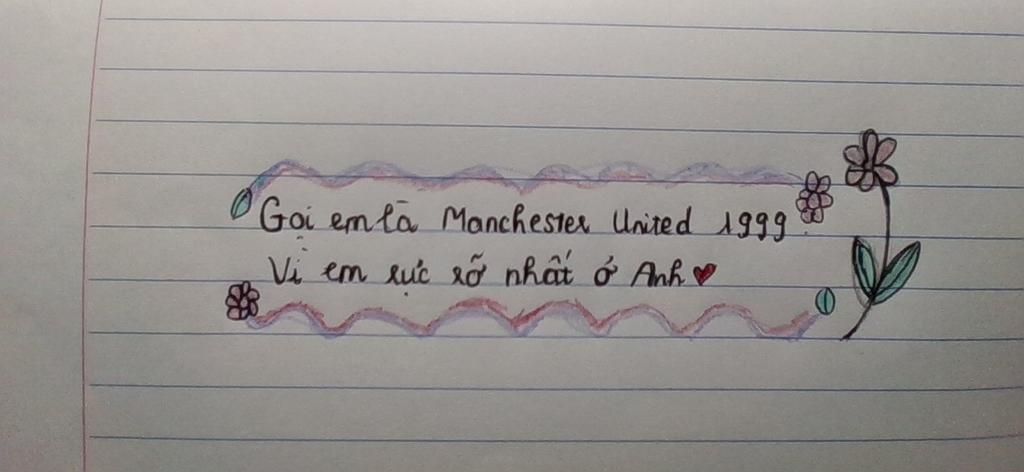 Gọi em là Manchester United 1999.
Vì em rực rỡ nhất ở Anh ♥